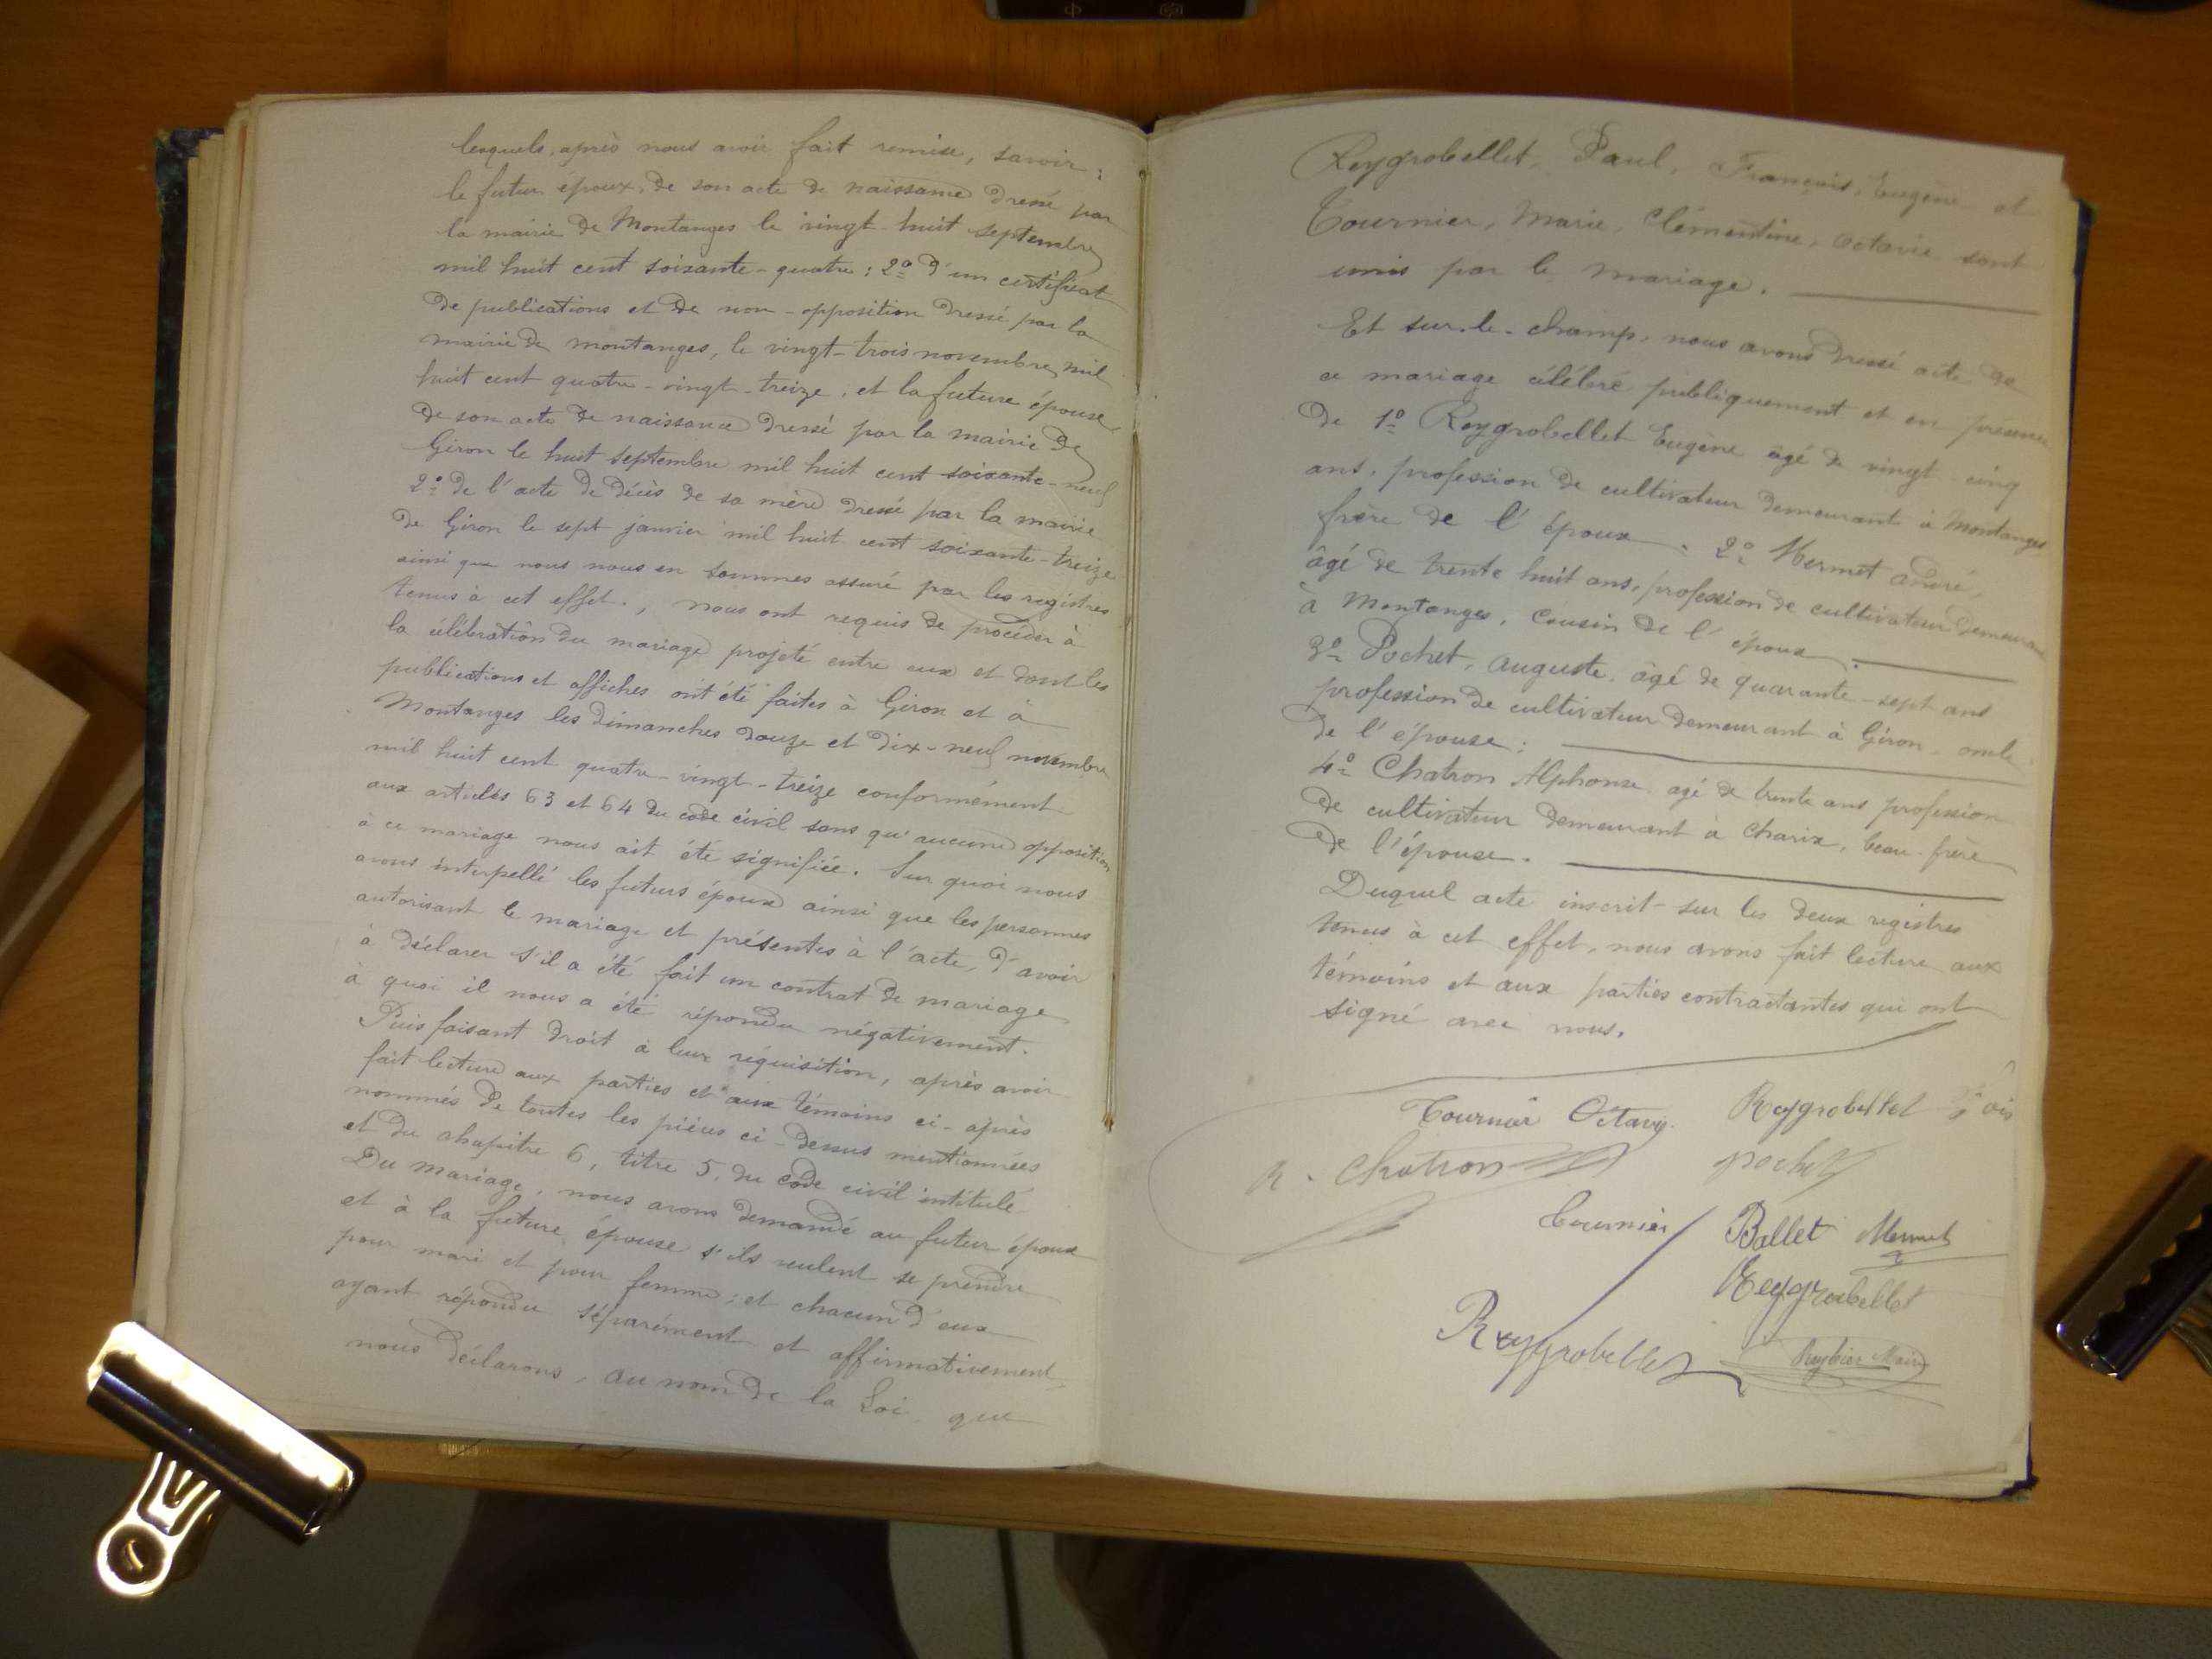 lesquels, après nous avoir fait remise, savoir :
le futur époux, de son acte de naissance dressé par
la mairie de Montanges le vingt-huit septembre
mil huit cent soixante-quatre : 2º d'un certificat
de publications et de non-opposition dressé par la
mairie de montanges, le vingt-trois novembre, mil
huit cent quatre-vingt-treize, et la future épouse
de son acte de naissance dressé par la mairie de
Giron le huit septembre mil huit cent soixante-neuf
2º de l'acte de décès de sa mère dressé par la mairie
de Giron le sept janvier mil huit cent soixante-treize
ainsi que nous nous en sommes assuré par les registres
tenus à cet effet., nous ont requis de procéder à
la célébration du mariage projeté entre eux et dont les
publications et affiches ont été faites à Giron et à
Montanges les dimanches douze et dix-neuf novembre
mil huit cent quatre-vingt-treize conformément
aux articles 63 et 64 du code civil sans qu'aucune opposition
à ce mariage nous ait été signifiée. Sur quoi nous
avons interpellé les futurs époux ainsi que les personnes
autorisant le mariage et présentes à l'acte, d'avoir
à déclarer s'il a été fait un contrat de mariage
à quoi il nous a été répondu négativement.
Puis faisant droit à leur réquisition, après avoir
fait lecture aux parties et aux témoins ci-après
nommés de toutes les pièces ci-dessus mentionnées
et du chapitre 6, titre 5, du code civil intitulé
Du mariage, nous avons demandé au futur époux
et à la future épouse s'ils veulent se prendre
pour mari et pour femme ; et chacun d'eux
ayant répondu séparément et affirmativement,
nous déclarons, au nom de la Loi que
Reygrobellet, Paul, François, Eugène et
Tournier, Marie, Clémentine, octavie sont
unis par le mariage.
Et sur-le-champ, nous avons dressé acte de
ce mariage célébré publiquement et en présence
de 1º Reygrobellet Eugène âgé de vingt cinq
ans, profession de cultivateur demeurant à Montanges
frère de l'époux : 2º Mermet andré,
âgé de trente huit ans, profession de cultivateur demeurant
à Montanges, Cousin de l'époux.
3º Pochet, auguste, âgé de quarante-sept ans
profession de cultivateur demeurant à Giron oncle
de l'épouse :
4º Chatron Alphonse agé de trente ans profession
de cultivateur demeurant à Charix, beau-frère
de l'épouse.
Duquel acte inscrit sur les deux registres
tenus à cet effet, nous avons fait lecture aux
témoins et aux parties contractantes qui ont
signé avec nous.
Tournier Octavie Reygrobellet
Chatron pochet
Tournier Ballet Mermet
Reygrobellet
Reygrobellet Maire